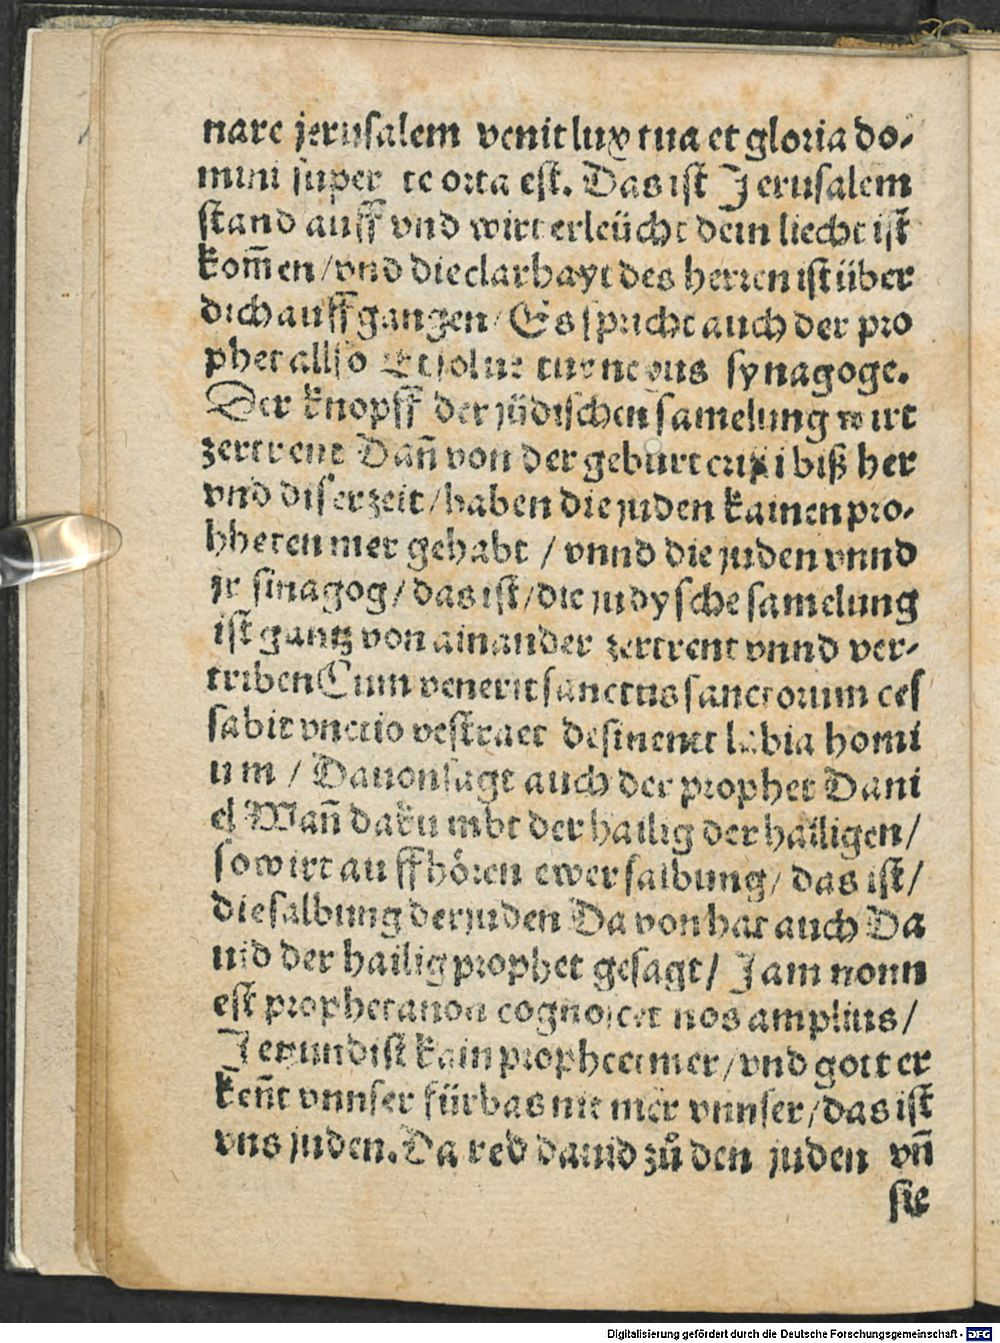 nare jerusalem venit lux tua et gloria do-
mini super te orta est. Das ist Jerusalem
stand auff vnd wirt erleücht dein liecht ist
kom̄en/vnd die clarhayt des herren ist über
dich auffgangen/Es spricht auch der pro
phet allso Et soluetur neruus synagoge.
Der knopff der jüdischen samelung wirt
zertrent Dan̄ von der geburt cristi biß her
vnd diser zeit/haben die juden kainen pro-
hheten mer gehabt / vnnd die juden vnnd
jr sinagog/das ist/die judysche samelung
ist gantz von ainander zertrent vnnd ver-
triben Cum venerit sanctus sanctorum ces
sabit vnctio vestra et desinent labia homi
num / Dauon sagt auch der prophet Dani
el Wan̄ da kumbt der hailig der hailigen/
so wirt auffhören ewer salbung/ das ist/
die salbung der juden Da von hat auch Da
uid der hailig prophet gesagt/ Jam nonn
est propheta non cognoscet nos amplius/
Jetzund ist kain prophet mer/vnd gott er
ken̄t vnnser fürbas nit mer vnnser/das ist
vns juden. Da red dauid zů den juden vn̄
sie
Digitalisierung gefördert durch die Deutsche Forschungsgemeinschaft - DFG